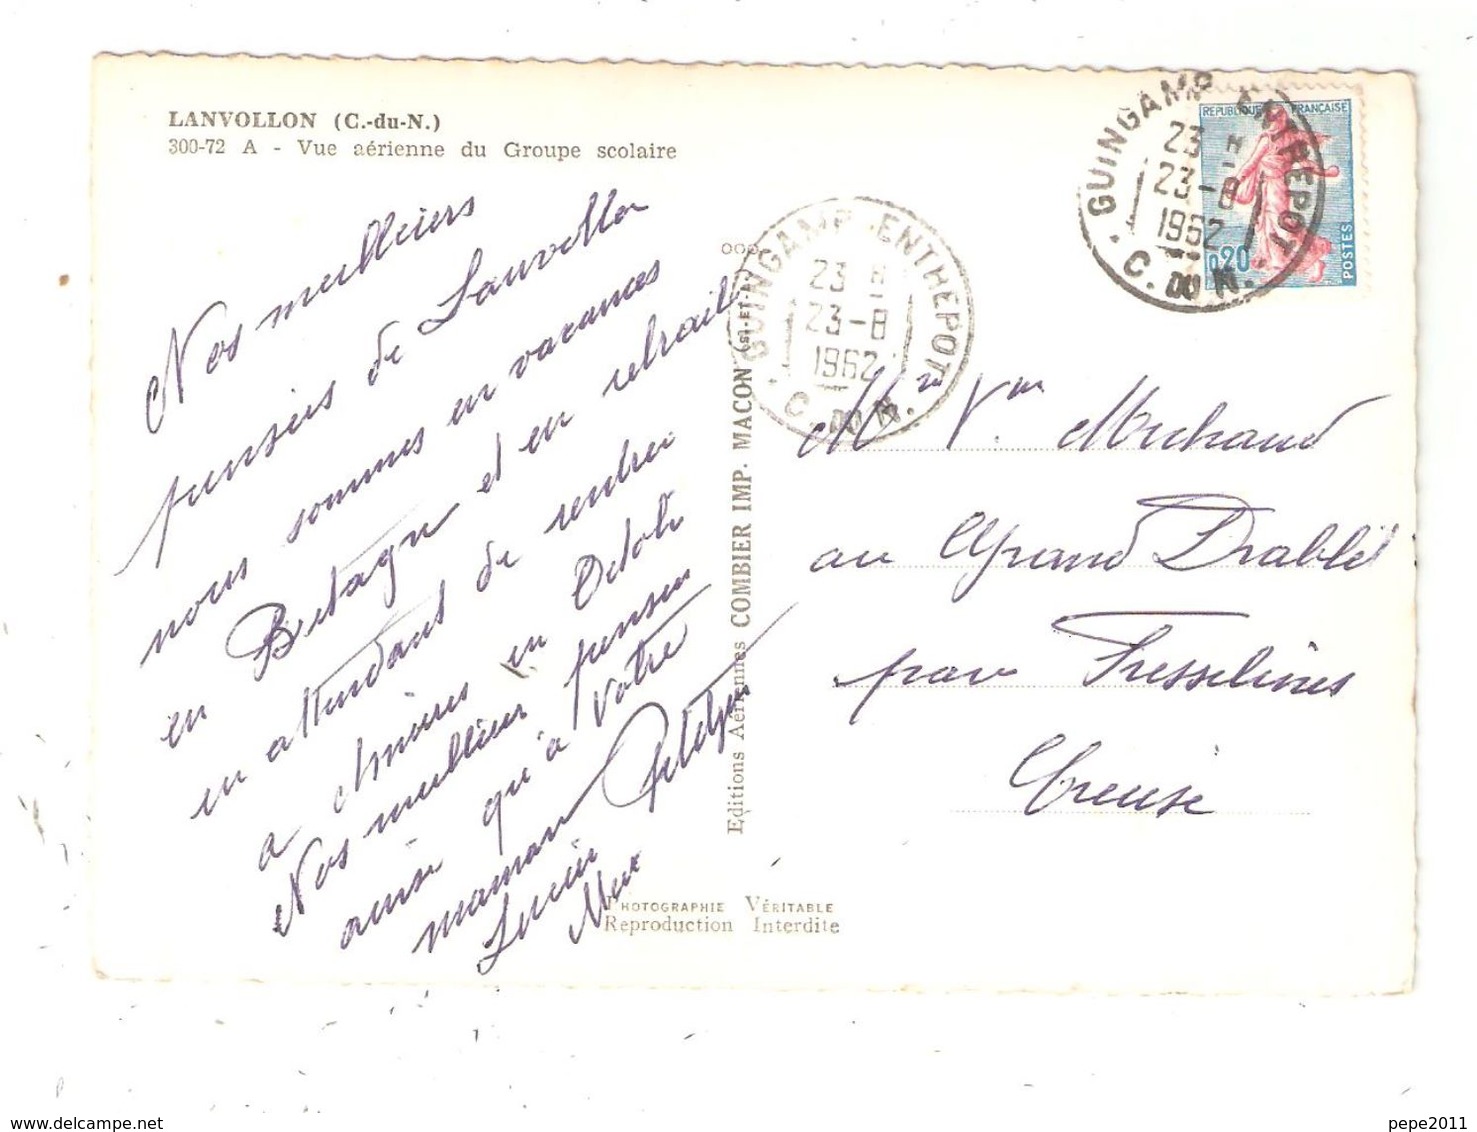 LANVOLLON (C.-du-N.)
300-72 A - Vue aérienne du Groupe scolaire
Nos meilleurs
pensées de Lanvollon
nous sommes en vacances
en Bretagne et en retraite
en attendant de rentrer
a en Octobre
Nos meilleures pensées
ainsi qu'à votre
maman
Lucien
Editions Aériennes COMBIER IMP. MACON (S.-ET-L.)
PHOTOGRAPHIE VÉRITABLE
Reproduction Interdite
GUINGAMP ENTREPOT
23 H
23-8
1962
C. DU N.
GUINGAMP ENTREPOT
23 H
23-8
1962
C. DU N.
REPUBLIQUE FRANÇAISE
0,20
POSTES
Michaud
au Grand Diablet
par Fresselines
Creuse
www.delcampe.net
pepe2011